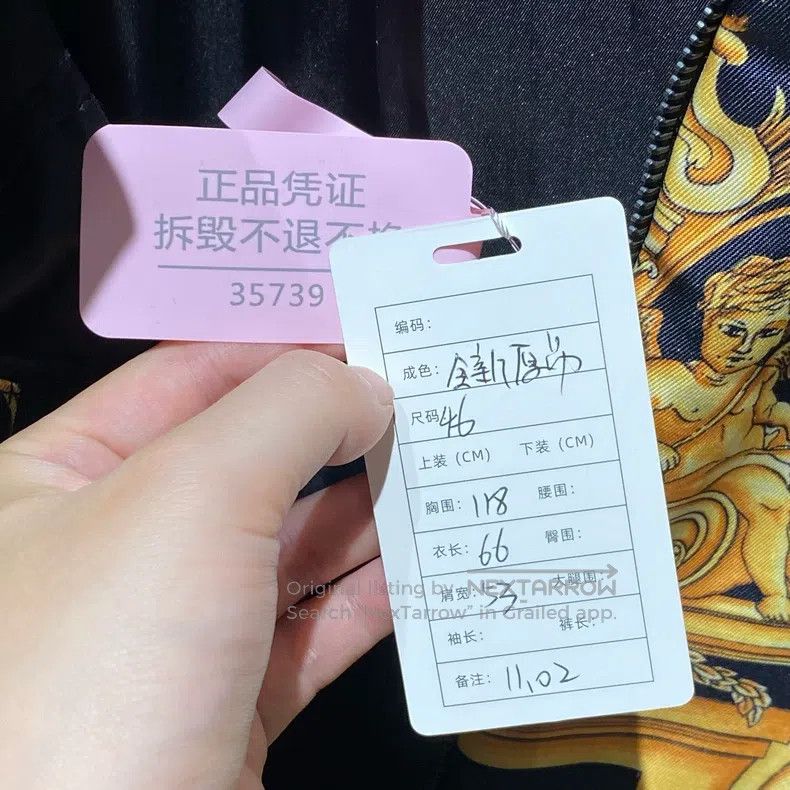 正品凭证
拆毁不退不换
35739
编码：
成色：全新
尺码：46
上装（CM） 下装（CM）
胸围：118 腰围：
衣长：66 臀围：
肩宽： 大腿围：
袖长： 裤长：
备注：11,02
Original listing by NEXTARROW
Search "NexTarrow" in Grailed app.